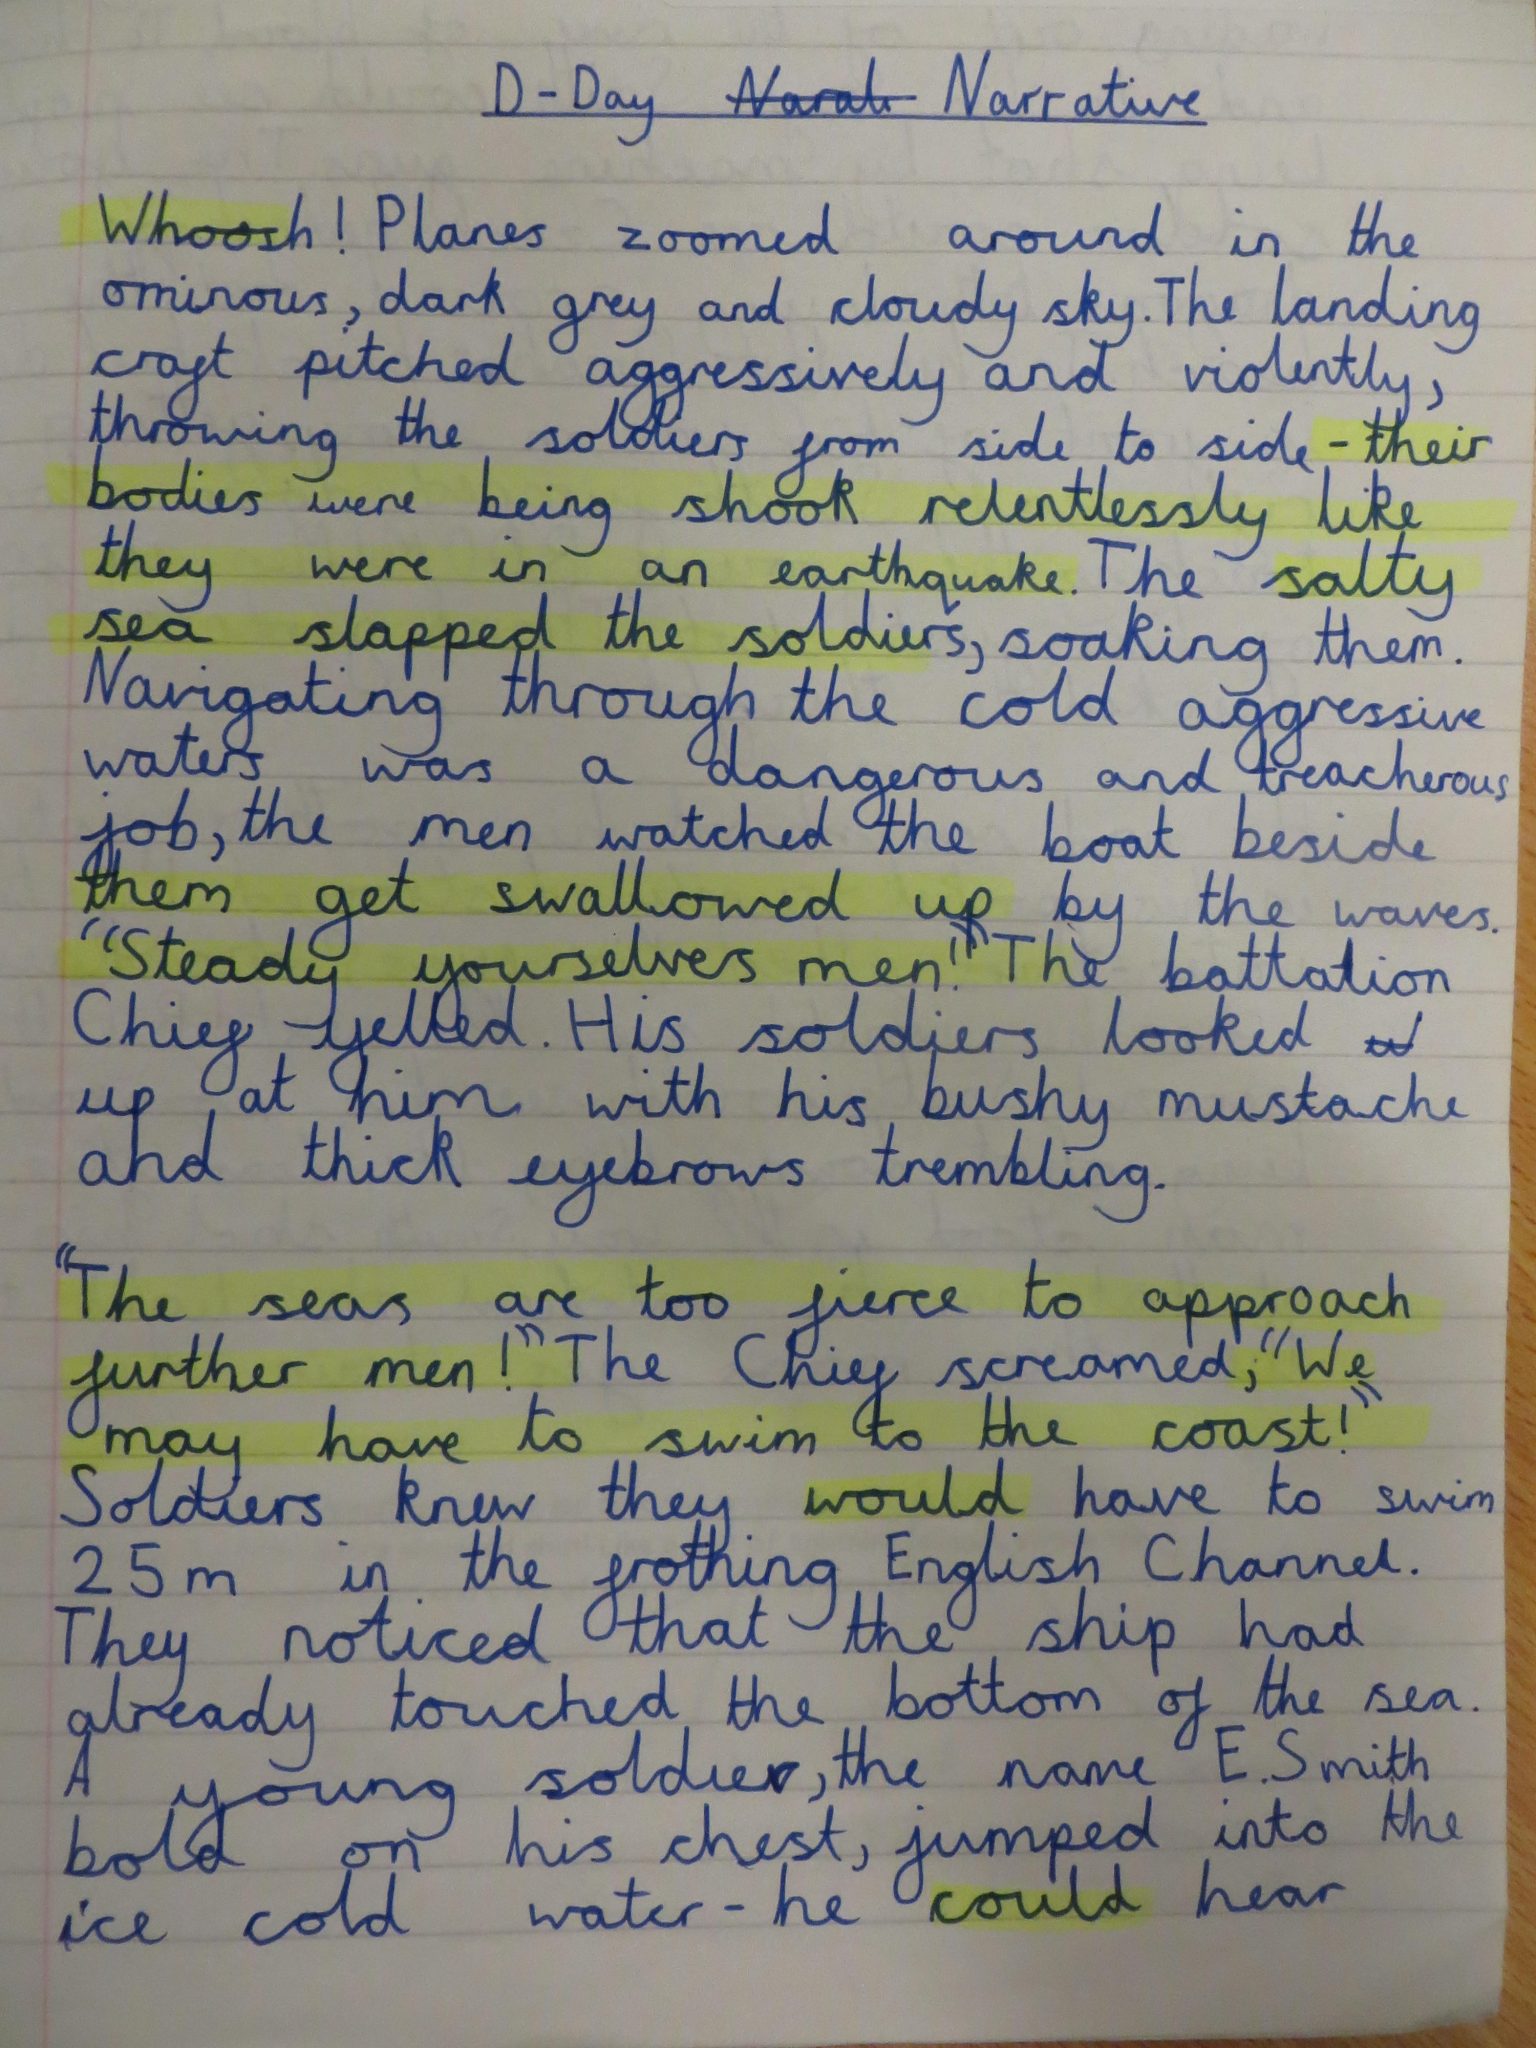 D-Day Narrative
Whoosh! Planes zoomed around in the
ominous, dark grey and cloudy sky. The landing
craft pitched aggressively and violently,
throwing the soldiers from side to side - their
bodies were being shook relentlessly like
they were in an earthquake. The salty
sea slapped the soldiers, soaking them.
Navigating through the cold aggressive
waters was a dangerous and treacherous
job, the men watched the boat beside
them get swallowed up by the waves.
"Steady yourselves men!" The battation
Chief yelled. His soldiers looked
up at him with his bushy mustache
and thick eyebrows trembling.
"The seas are too fierce to approach
further men!" The Chief screamed, "We
may have to swim to the coast!"
Soldiers knew they would have to swim
25m in the frothing English Channel.
They noticed that the ship had
already touched the bottom of the sea.
A young soldier, the name E.Smith
bold on his chest, jumped into the
ice cold water - he could hear